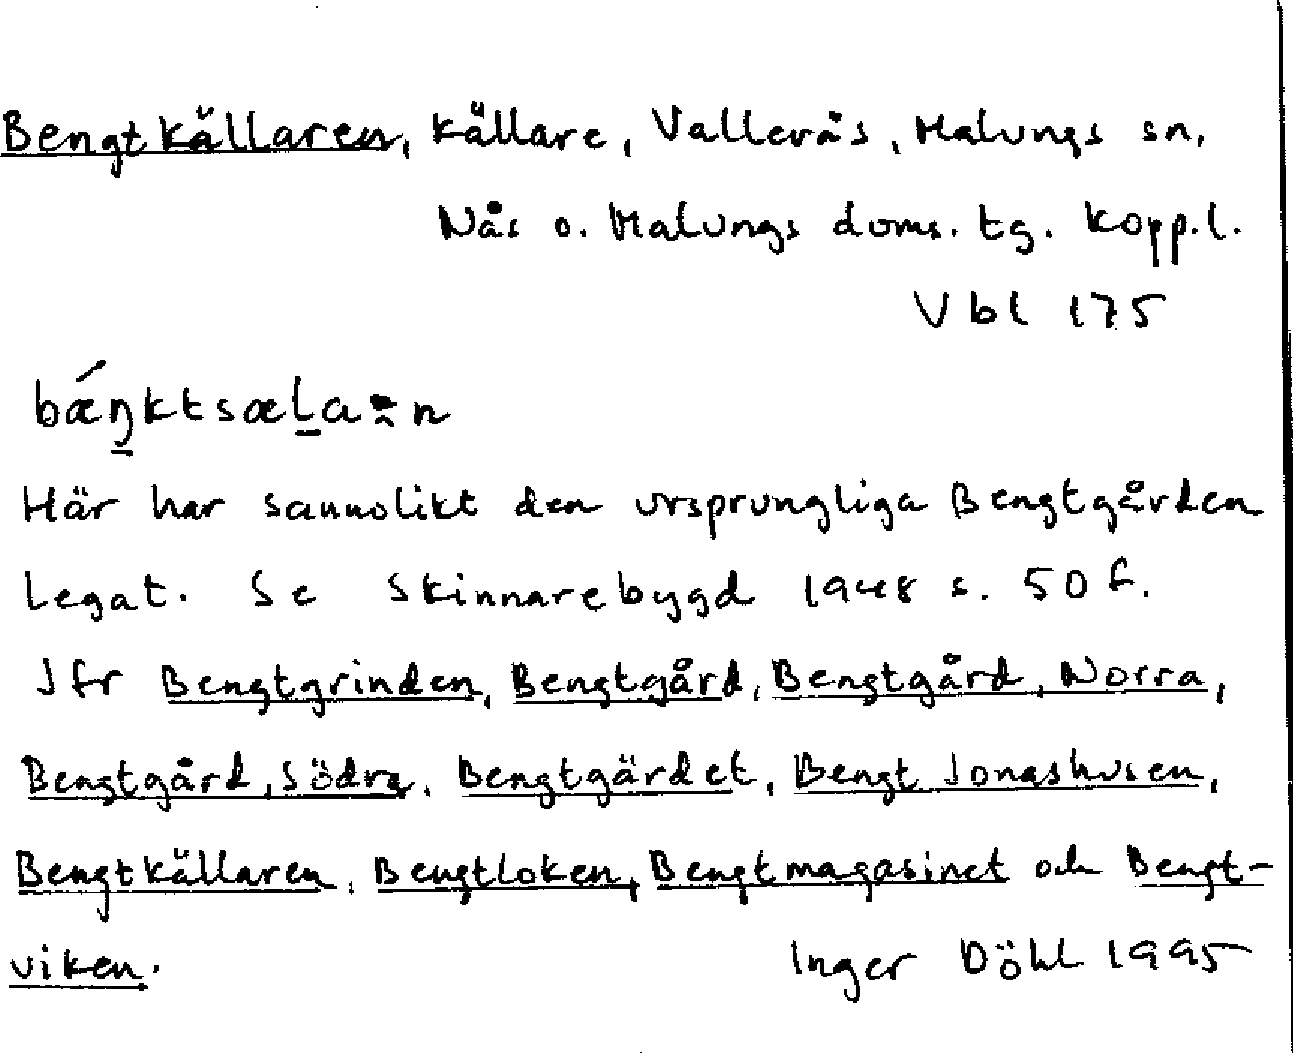 Bengtkällaren, källare, Vallerås, Malungs sn,
Nås o. Malungs doms. tg. Kopp.l.
Vbl 175
bǽŋktsæLa n
Här har sannolikt den ursprungliga Bengtgården
legat. Se Skinnarebygd 1948 s. 50 f.
Jfr Bengtgrinden, Bengtgård, Bengtgård, Norra,
Bengtgård, Södra, Bengtgärdet, Bengt Jonashusen,
Bengtkällaren, Bengtloken, Bengtmagasinet och Bengt-
viken.
Inger Döhl 1995